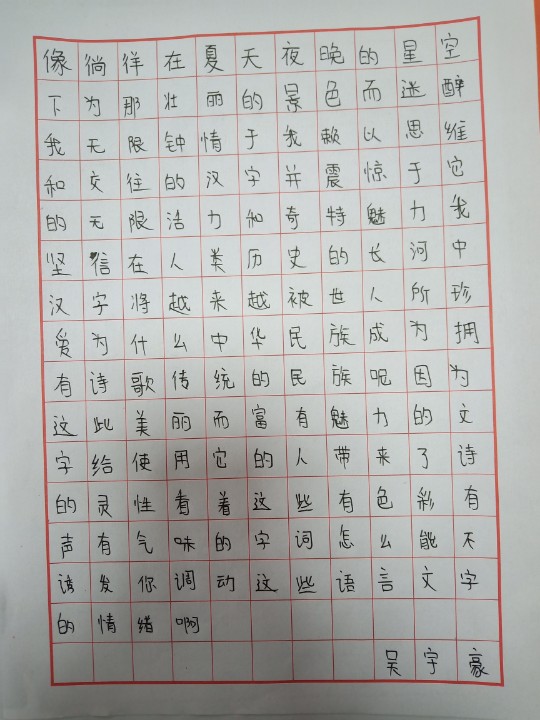 像徜徉在夏天夜晚的星空
下为那壮丽的景色而迷醉
我无限钟情于我赖以思维
和交往的汉字并震惊于它
的无限活力和奇特魅力我
坚信在人类历史的长河中
汉字将越来越被世人所珍
爱为什么中华民族成为拥
有诗歌传统的民族呢因为
这些美丽而富有魅力的文
字给使用它的人带来了诗
的灵性看着这些有色彩有
声有气味的字词怎么能不
诱发你调动这些语言文字
的情绪啊
吴宇豪